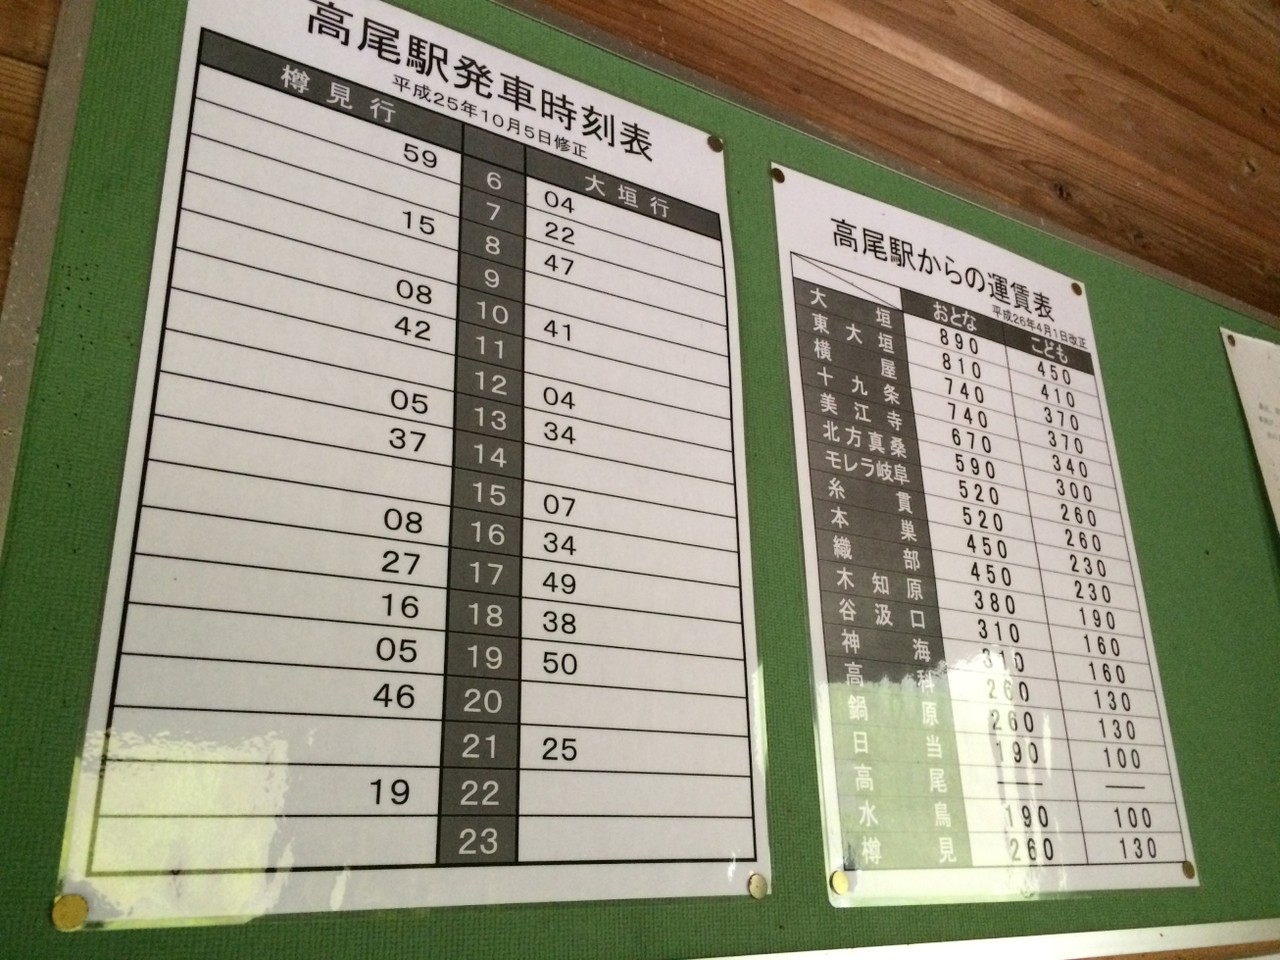 高尾駅発車時刻表
平成25年10月5日修正
樽見行 大垣行
59 6 04
7 22
15 8 47
9
08 10 41
42 11
12 04
05 13 34
37 14
15 07
08 16 34
27 17 49
16 18 38
05 19 50
46 20
21 25
19 22
23
高尾駅からの運賃表
平成26年4月1日改正
おとな こども
大垣 890 450
東大垣 810 410
横屋 740 370
十九条 740 370
美江寺 670 340
北方真桑 590 300
モレラ岐阜 520 260
糸貫 520 260
本巣 450 230
織部 450 230
木知原 380 190
谷汲口 310 160
神海 310 160
高科 260 130
鍋原 260 130
日当 190 100
高尾 ― ―
水鳥 190 100
樽見 260 130